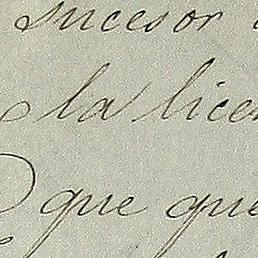 sucesor
la licen
que que